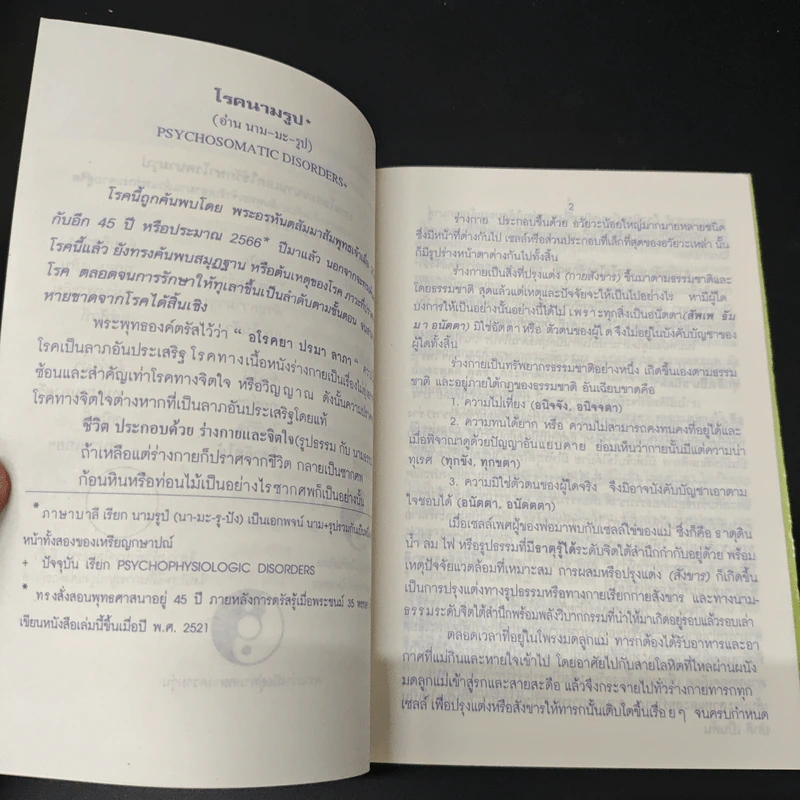 โรคนามรูป*
(อ่าน นาม-มะ-รูป)
PSYCHOSOMATIC DISORDERS+
โรคนี้ถูกค้นพบโดย พระอรหันตสัมมาสัมพุทธเจ้าเมื่อ
กับอีก 45 ปี หรือประมาณ 2566* ปีมาแล้ว นอกจาก
โรคนี้แล้ว ยังทรงค้นพบสมุฏฐาน หรือต้นเหตุของโรค
โรค ตลอดจนการรักษาให้ทุเลาขึ้นเป็นลำดับตามขั้นตอน จน
หายขาดจากโรคได้สิ้นเชิง
พระพุทธองค์ตรัสไว้ว่า " อโรคยา ปรมา ลาภา "
โรคเป็นลาภอันประเสริฐ โรคทางเนื้อหนังร่างกายเป็นเรื่องไม่
ซ้อนและสำคัญเท่าโรคทางจิตใจ หรือวิญญาณ ดังนั้นความ
โรคทางจิตใจต่างหากที่เป็นลาภอันประเสริฐโดยแท้
ชีวิต ประกอบด้วย ร่างกายและจิตใจ(รูปธรรม กับ
ถ้าเหลือแต่ร่างกายก็ปราศจากชีวิต กลายเป็นซากศพ
ก้อนหินหรือท่อนไม้เป็นอย่างไร ซากศพก็เป็นอย่างนั้น
* ภาษาบาลี เรียก นามรูปํ (นา-มะ-รู-ปัง) เป็นเอกพจน์ นาม+รูปรวมกัน
หน้าทั้งสองของเหรียญกษาปณ์
+ ปัจจุบัน เรียก PSYCHOPHYSIOLOGIC DISORDERS
* ทรงสั่งสอนพุทธศาสนาอยู่ 45 ปี ภายหลังการตรัสรู้เมื่อพระชนม์ 35
เขียนหนังสือเล่มนี้ขึ้นเมื่อปี พ.ศ. 2521
2
ร่างกาย ประกอบขึ้นด้วย อวัยวะน้อยใหญ่มากมายหลายชนิด
ซึ่งมีหน้าที่ต่างกันไป เซลล์หรือส่วนประกอบที่เล็กที่สุดของอวัยวะเหล่า นั้น
ก็มีรูปร่างหน้าตาต่างกันไปทั้งสิ้น
ร่างกายเป็นสิ่งที่ปรุงแต่ง (กายสังขาร) ขึ้นมาตามธรรมชาติและ
โดยธรรมชาติ สุดแล้วแต่เหตุและปัจจัยจะให้เป็นไปอย่างไร หามีผู้ใด
บงการให้เป็นอย่างนั้นอย่างนี้ได้ไม่ เพราะทุกสิ่งเป็นอนัตตา(สัพเพ ธัม
มา อนัตตา) มิใช่อัตตา หรือ ตัวตนของผู้ใด จึงไม่อยู่ในบังคับบัญชาของ
ผู้ใดทั้งสิ้น
ร่างกายเป็นทรัพยากรธรรมชาติอย่างหนึ่ง เกิดขึ้นเองตามธรรม
ชาติ และอยู่ภายใต้กฎของธรรมชาติ อันเฉียบขาดคือ
1. ความไม่เที่ยง (อนิจจัง, อนิจจตา)
2. ความทนได้ยาก หรือ ความไม่สามารถคงทนคงที่อยู่ได้และ
เมื่อพิจาณาดูด้วยปัญญาอันแยบคาย ย่อมเห็นว่ากายนั้นมีแต่ความน่า
ทุเรศ (ทุกขัง, ทุกขตา)
3. ความมิใช่ตัวตนของผู้ใดจริง จึงมิอาจบังคับบัญชาเอาตาม
ใจชอบได้ (อนัตตา, อนัตตตา)
เมื่อเซลล์เพศผู้ของพ่อมาพบกับเซลล์ไข่ของแม่ ซึ่งก็คือ ธาตุดิน
น้ำ ลม ไฟ หรือรูปธรรมที่มีธาตุรู้ได้ระดับจิตใต้สำนึกกำกับอยู่ด้วย พร้อม
เหตุปัจจัยแวดล้อมที่เหมาะสม การผสมหรือปรุงแต่ง (สังขาร) ก็เกิดขึ้น
เป็นการปรุงแต่งทางรูปธรรมหรือทางกายเรียกกายสังขาร และทางนาม-
ธรรมระดับจิตใต้สำนึกพร้อมพลังวิบากกรรมที่นำให้มาเกิดอยู่รอบแล้วรอบเล่า
ตลอดเวลาที่อยู่ในโพรงมดลูกแม่ ทารกต้องได้รับอาหารและอา
กาศที่แม่กินและหายใจเข้าไป โดยอาศัยไปกับสายโลหิตที่ไหลผ่านผนัง
มดลูกแม่เข้าสู่รกและสายสะดือ แล้วจึงกระจายไปทั่วร่างกายทารกทุก
เซลล์ เพื่อปรุงแต่งหรือสังขารให้ทารกนั้นเติบโตขึ้นเรื่อยๆ จนครบกำหนด